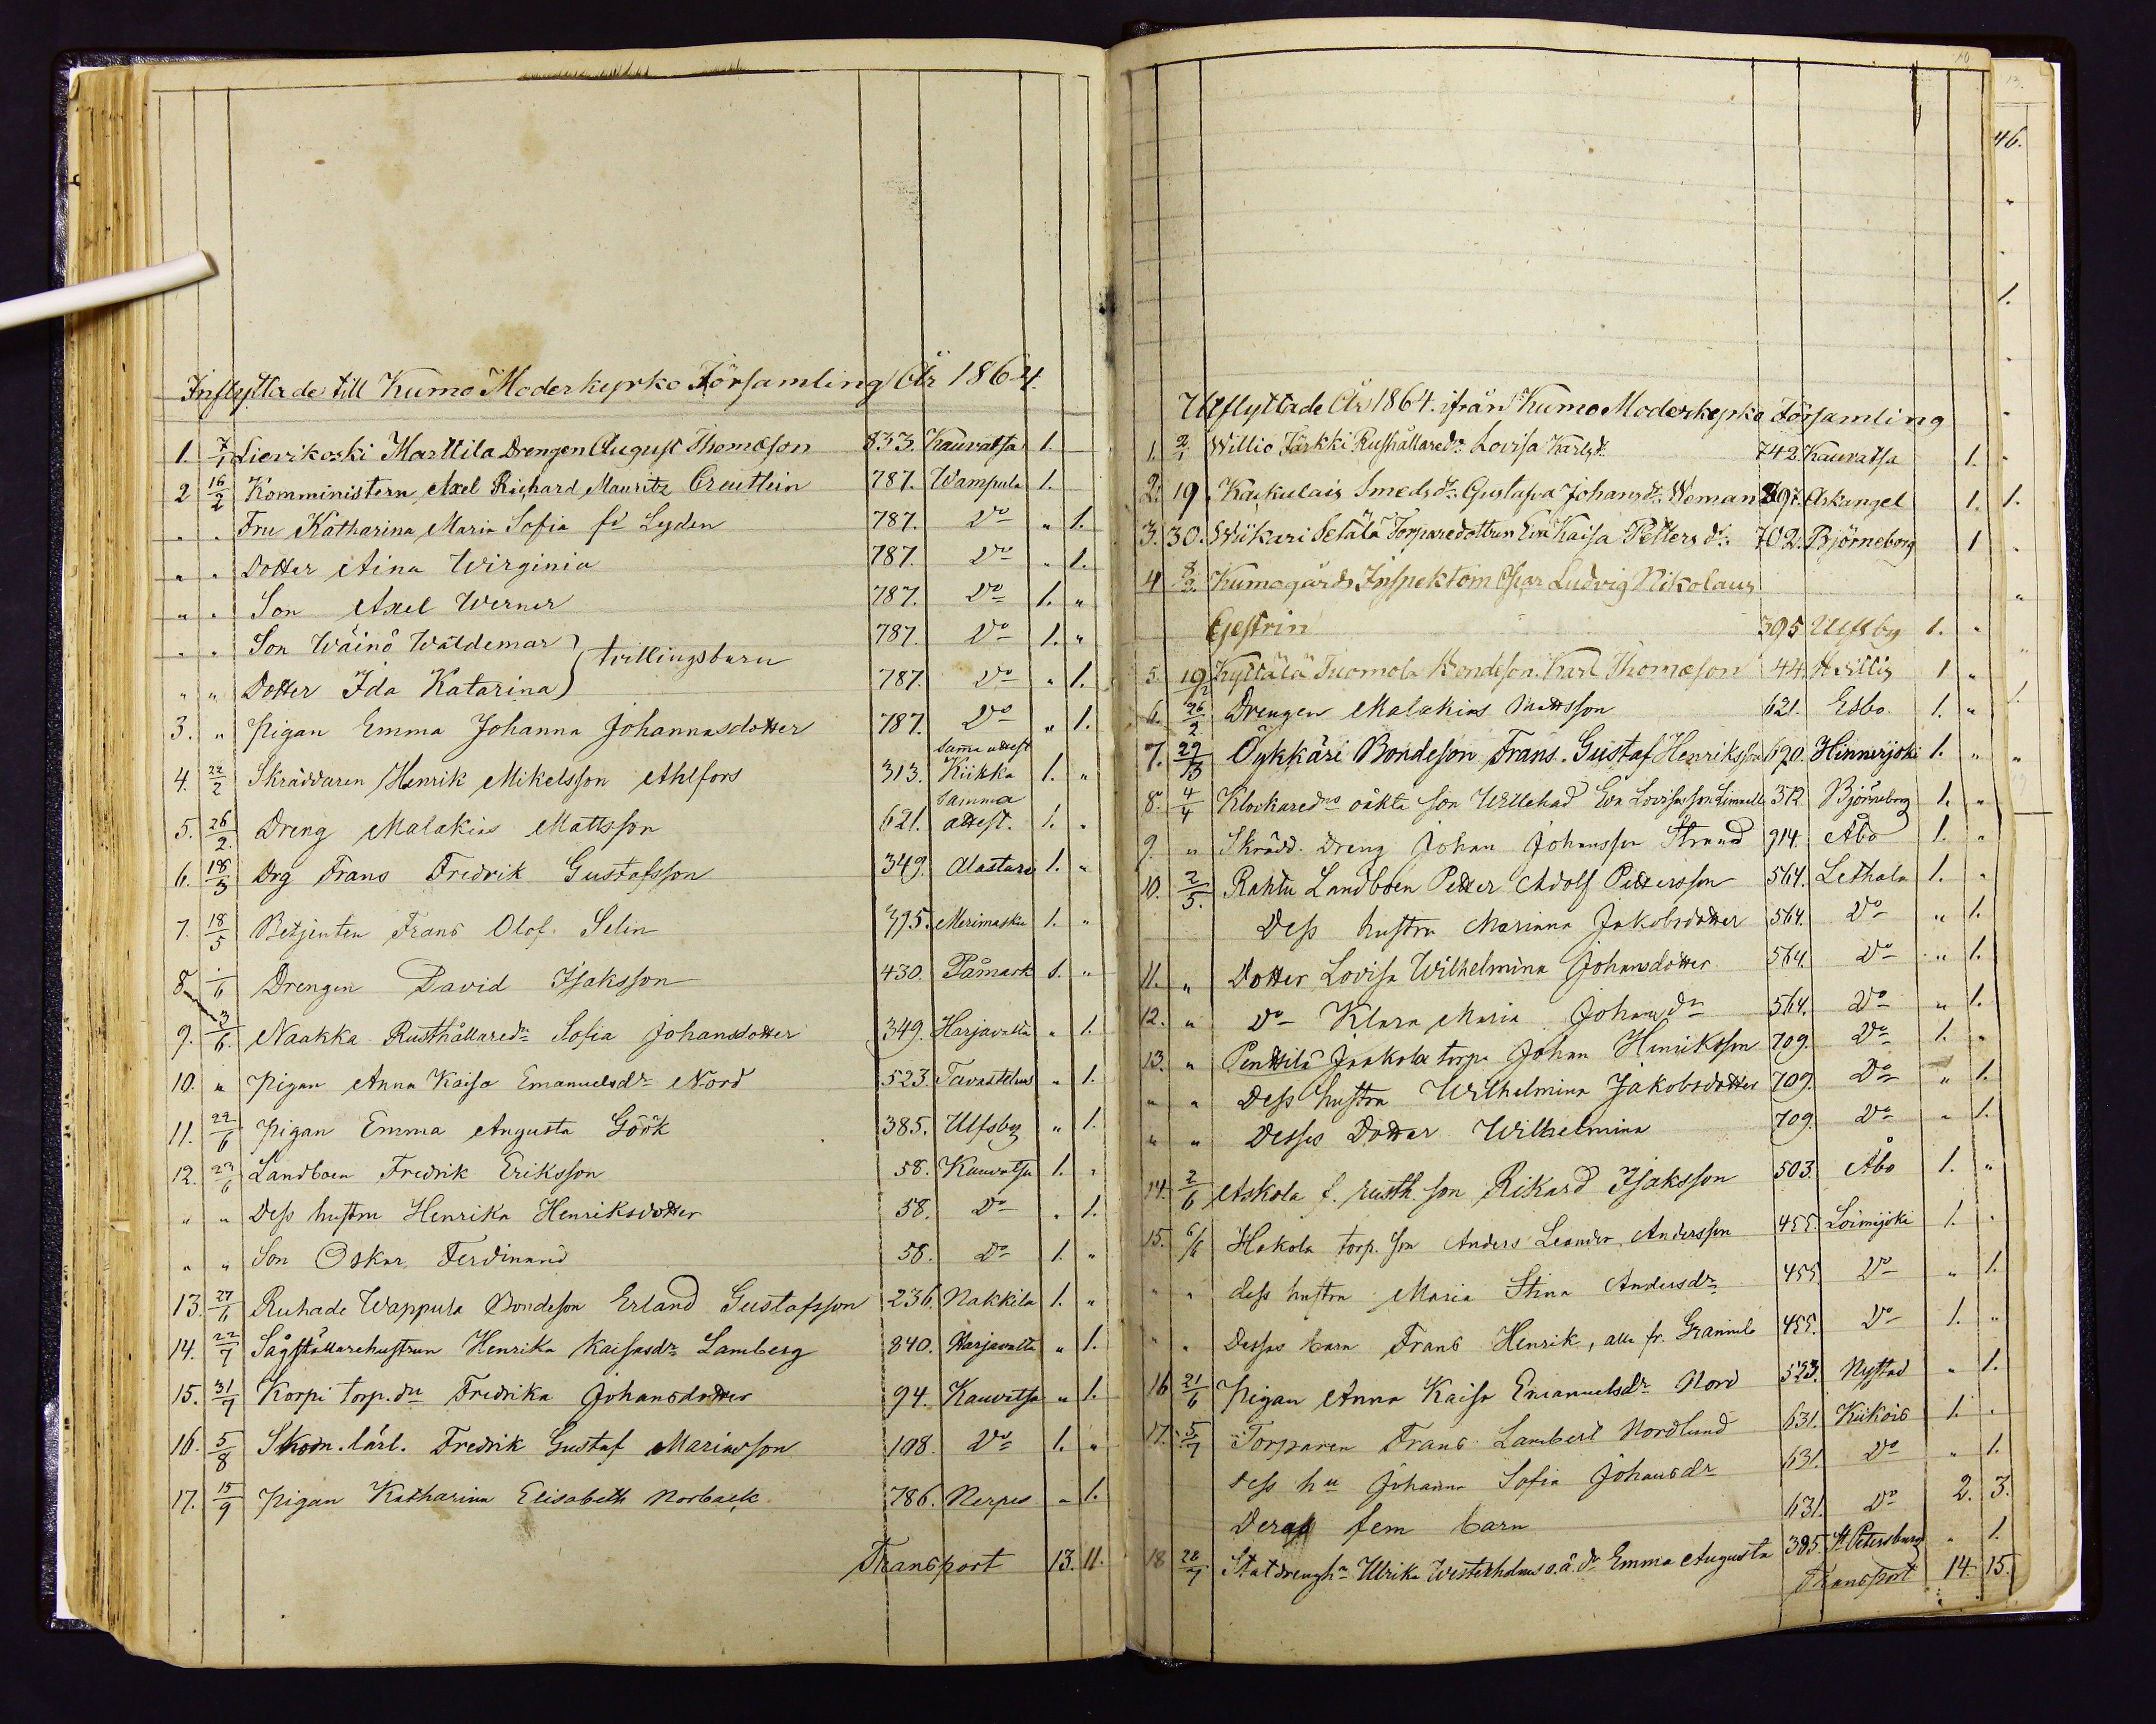 Inflyttade till Kumo Moderkyrko Församling År 1864.
1. 7/1 Lievikoski Marttila Drengen August Thomæson 833. Kauvatsa 1.
2 16/2 Komministern Axel Richard Mauritz Creutlein 787. Wampula 1.
" " Fru Katharina Maria Sofia fd Lyden 787. Do " 1.
" " Dotter Aina Wirginia 787. Do " 1.
" " Son Axel Werner 787. Do 1. "
" " Son Wäinö Waldemar } trillingsbarn 787. Do 1. "
" " Dotter Ida Katarina 787. Do " 1.
3. " Pigan Emma Johanna Johannasdotter 787. Do " 1.
4. 22/2 Skräddaren Henrik Mikelsson Ahlfors 313. Samma attest Kiikka 1. "
5. 26/2 Dreng Malakias Mattsson 621. Samma attest. 1. "
6. 18/3 Drg Frans Fredrik Gustafsson 349. Alastaro 1. "
7. 18/5 Betjenten Frans Olof Selin 395. Merimasku 1. "
8. 1/6 Drengen David Isaksson 430. Påmark 1. "
9. 3/6. Naakka Rusthållaredr Sofia Johansdotter 349. Harjavalta " 1.
10. " Pigan Anna Kaisa Emanuelsdr Nord 523. Tavastehus " 1.
11. 22/6 Pigan Emma Augusta Göök 385. Ulfsby " 1.
12. 23/6 Landboen Fredrik Eriksson 58. Kauvatsa 1. "
" " Dess hustru Henrika Henriksdotter 58. Do " 1.
" " Son Oskar Ferdinand 58. Do 1. "
13. 27/6 Ruhade Wappula Bondeson Erland Gustafsson 236. Nakkila 1. "
14. 22/7 Sågställarehustrun Henrika Kaisasdr Lamberg 840. Harjavalta " 1.
15. 31/7 Korpi torp.dr Fredrika Johansdotter 94. Kauvatsa " 1.
16. 5/8 Skom. lärl. Fredrik Gustaf Mariasson 108. Do 1. "
17. 15/9 Pigan Katharina Elisabeth Norback 786. Nerpes " 1.
Transport 13. 11.
Utflyttade År 1864. ifrån Kumo Moderkyrko Församling
1. 2/1 Willio Järkki Rusthållaredr Lovisa Karlsdr 742. Kauvatsa 1.
2. 19. Kaukulais Smedsdr Gustafva Johansdr Woman 897. Arkangel 1.
3. 30. Wiikari Setälä Torparedottren Eva Kaisa Petters dr. 702. Björneborg 1
4 8/2. Kumogårds Inspektorn Oscar Ludvig Nikolaus
Gestrin 395 Ulfsby 1. "
5. 19/2 Kyttälä Tuomola Bondeson Karl Thomæson 44. Hvittis 1. "
6. 26/2 Drengen Malakias Mattsson 621. Esbo. 1. "
7. 29/3 Öykkäri Bondeson Frans Gustaf Henriksson 620. Hinnerjoki 1. "
8. 4/4 Klockaredrs oäkta son Willehad Eva Lovisasson 312 Björneborg 1. "
9. " Skrädd. Dreng Johan Johansson Strand 914. Åbo 1. "
10. 2/5. Rahtu Landboen Petter Adolf Pettersson 564. Lethala 1. "
Dess hustru Marianna Jakobsdotter 564. Do " 1.
11. " Dotter Lovisa Wilhelmina Johansdotter 564. Do " 1.
12. " Do Klara Maria Johansdr 564. Do " 1.
13. " Penttilä Jaakola torp. Johan Henriksson 709. Do 1. "
" " Dess hustru Wilhelmina Jakobsdotter 709. Do " 1.
" " Desses Dotter Wilhelmina 709. Do " 1.
14. 2/6 Askola f. rusth. son Rikard Isaksson 503. Åbo 1. "
15. 6/6 Hakola torp. son Anders Leander Andersson 455. Loimijoki 1. "
" " dess hustru Maria Stina Andersdr 455 Do " 1.
" " Desses barn Frans Henrik, alla fr. 455. Do 1. "
16 21/6 Pigan Anna Kaisa Emanuelsdr Nord 523. Nystad " 1.
17. 5/7 Torparen Frans Lambert Nordlund 631. Kiikois 1. "
dess hu Johanna Sofia Johansdr 631. Do " 1.
Deras fem barn 631. Do 2. 3.
18 28/7. Statdrengh. Ulrika Westerholms o.ä. dr Emma Augusta 385. St Petersburg " 1.
Transport 14. 15.
46.